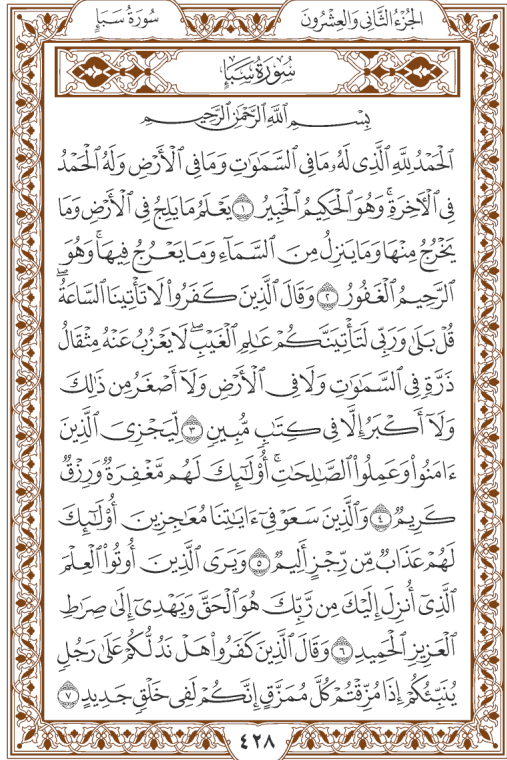 الجُزْءُ الثَّانِي وَالعِشْرُونَ
سُورَةُ سَبَإٍ
سُورَةُ سَبَإٍ
بِسْمِ ٱللَّهِ ٱلرَّحْمَٰنِ ٱلرَّحِيمِ
ٱلْحَمْدُ لِلَّهِ ٱلَّذِى لَهُۥ مَا فِى ٱلسَّمَٰوَٰتِ وَمَا فِى ٱلْأَرْضِ وَلَهُ ٱلْحَمْدُ
فِى ٱلْءَاخِرَةِۚ وَهُوَ ٱلْحَكِيمُ ٱلْخَبِيرُ ۝١ يَعْلَمُ مَا يَلِجُ فِى ٱلْأَرْضِ وَمَا
يَخْرُجُ مِنْهَا وَمَا يَنزِلُ مِنَ ٱلسَّمَآءِ وَمَا يَعْرُجُ فِيهَاۚ وَهُوَ
ٱلرَّحِيمُ ٱلْغَفُورُ ۝٢ وَقَالَ ٱلَّذِينَ كَفَرُوا۟ لَا تَأْتِينَا ٱلسَّاعَةُۖ
قُلْ بَلَىٰ وَرَبِّى لَتَأْتِيَنَّكُمْ عَٰلِمِ ٱلْغَيْبِۖ لَا يَعْزُبُ عَنْهُ مِثْقَالُ
ذَرَّةٍ فِى ٱلسَّمَٰوَٰتِ وَلَا فِى ٱلْأَرْضِ وَلَآ أَصْغَرُ مِن ذَٰلِكَ
وَلَآ أَكْبَرُ إِلَّا فِى كِتَٰبٍ مُّبِينٍ ۝٣ لِّيَجْزِىَ ٱلَّذِينَ
ءَامَنُوا۟ وَعَمِلُوا۟ ٱلصَّٰلِحَٰتِۚ أُو۟لَٰٓئِكَ لَهُم مَّغْفِرَةٌ وَرِزْقٌ
كَرِيمٌ ۝٤ وَٱلَّذِينَ سَعَوْ فِىٓ ءَايَٰتِنَا مُعَٰجِزِينَ أُو۟لَٰٓئِكَ
لَهُمْ عَذَابٌ مِّن رِّجْزٍ أَلِيمٌ ۝٥ وَيَرَى ٱلَّذِينَ أُوتُوا۟ ٱلْعِلْمَ
ٱلَّذِىٓ أُنزِلَ إِلَيْكَ مِن رَّبِّكَ هُوَ ٱلْحَقَّ وَيَهْدِىٓ إِلَىٰ صِرَٰطِ
ٱلْعَزِيزِ ٱلْحَمِيدِ ۝٦ وَقَالَ ٱلَّذِينَ كَفَرُوا۟ هَلْ نَدُلُّكُمْ عَلَىٰ رَجُلٍ
يُنَبِّئُكُمْ إِذَا مُزِّقْتُمْ كُلَّ مُمَزَّقٍ إِنَّكُمْ لَفِى خَلْقٍ جَدِيدٍ ۝٧
٤٢٨